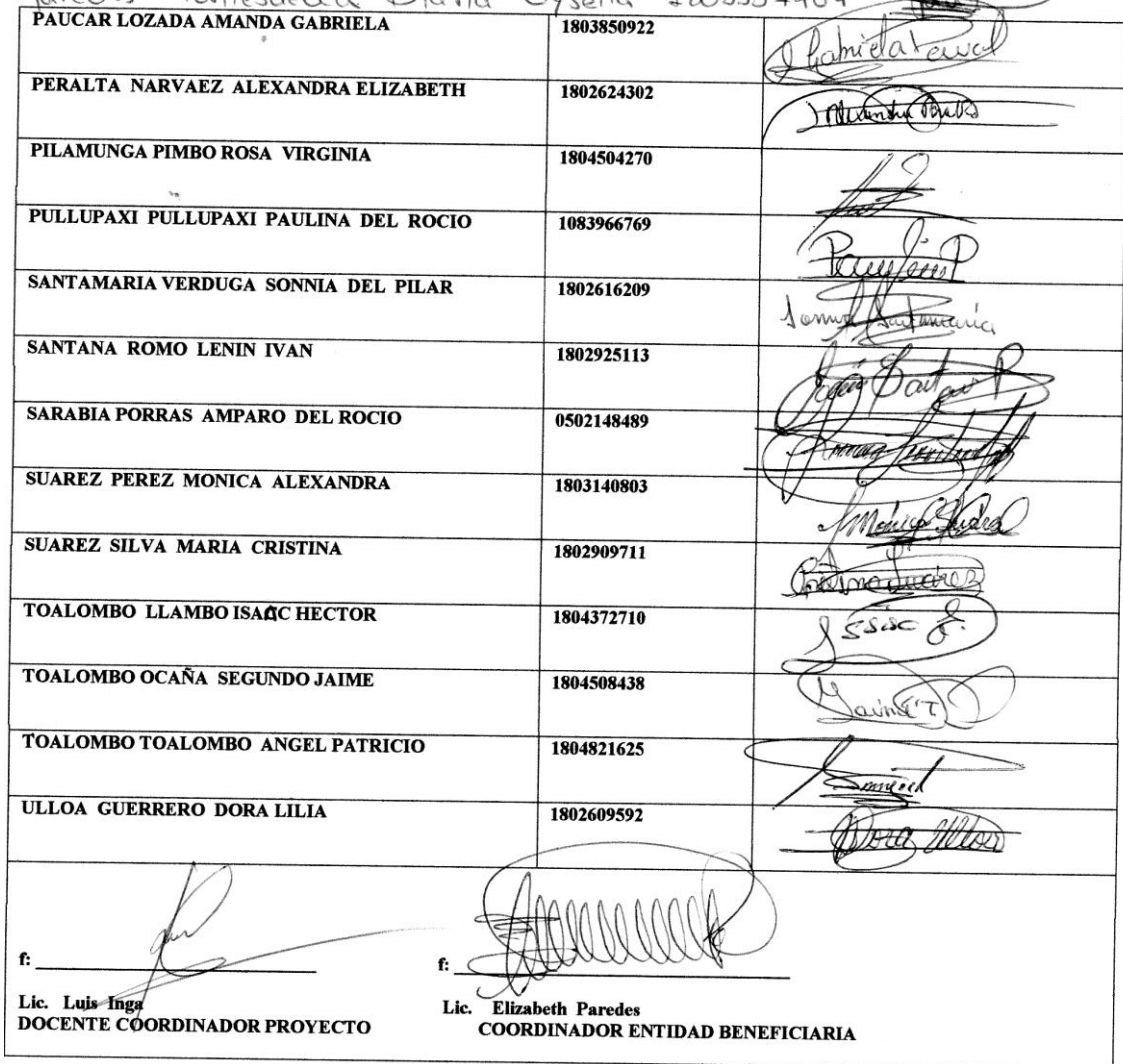 PAUCAR LOZADA AMANDA GABRIELA 1803850922 Gabriela Paucar
PERALTA NARVAEZ ALEXANDRA ELIZABETH 1802624302
PILAMUNGA PIMBO ROSA VIRGINIA 1804504270
PULLUPAXI PULLUPAXI PAULINA DEL ROCIO 1083966769
SANTAMARIA VERDUGA SONNIA DEL PILAR 1802616209
SANTANA ROMO LENIN IVAN 1802925113
SARABIA PORRAS AMPARO DEL ROCIO 0502148489
SUAREZ PEREZ MONICA ALEXANDRA 1803140803
SUAREZ SILVA MARIA CRISTINA 1802909711
TOALOMBO LLAMBO ISAAC HECTOR 1804372710
TOALOMBO OCAÑA SEGUNDO JAIME 1804508438
TOALOMBO TOALOMBO ANGEL PATRICIO 1804821625
ULLOA GUERRERO DORA LILIA 1802609592 Dora Ulloa
f: f:
Lic. Luis Inga Lic. Elizabeth Paredes
DOCENTE COORDINADOR PROYECTO COORDINADOR ENTIDAD BENEFICIARIA